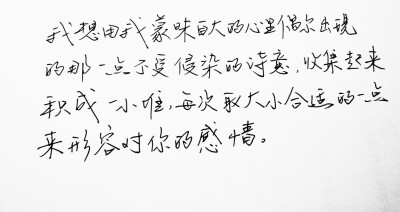 我想用我蒙昧自大的心里偶尔出现
的那一点不受侵染的诗意,收集起来
积成一小堆,每次取大小合适的一点
来形容对你的感情。